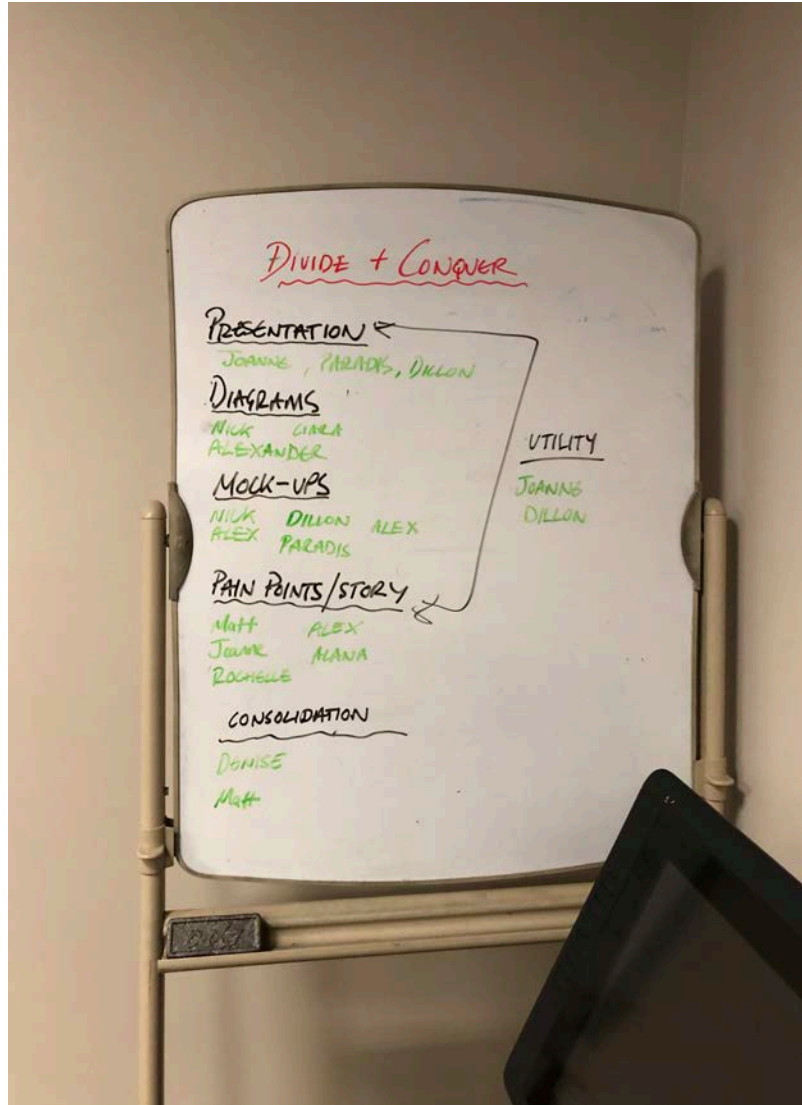 DIVIDE + CONQUER
PRESENTATION
JOANNE, PARADIS, DILLON
DIAGRAMS
NICK CIARA
ALEXANDER
MOCK-UPS
NICK DILLON ALEX
ALEX PARADIS
PAIN POINTS/STORY
Matt ALEX
Joanne ALANA
ROCHELLE
CONSOLIDATION
DENISE
Matt
UTILITY
JOANNE
DILLON